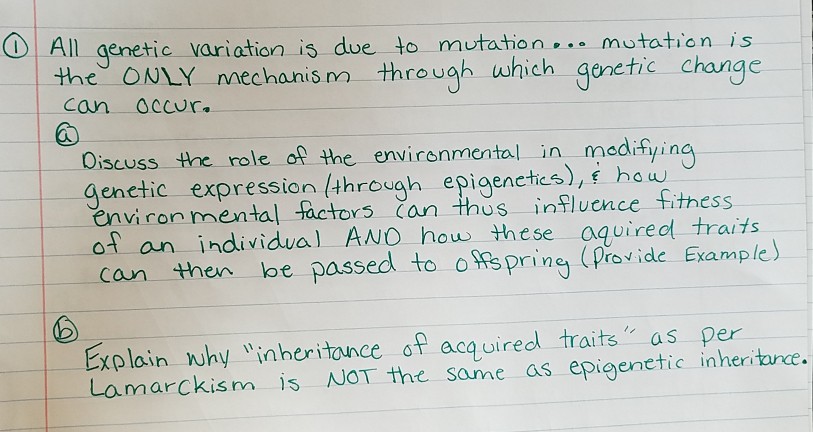 ① All genetic variation is due to mutation... mutation is
the ONLY mechanism through which genetic change
can occur.
ⓐ
Discuss the role of the environmental in modifying
genetic expression (through epigenetics), & how
environmental factors can thus influence fitness
of an individual AND how these aquired traits
can then be passed to offspring (Provide Example)
ⓑ
Explain why "inheritance of acquired traits" as per
Lamarckism is NOT the same as epigenetic inheritance.